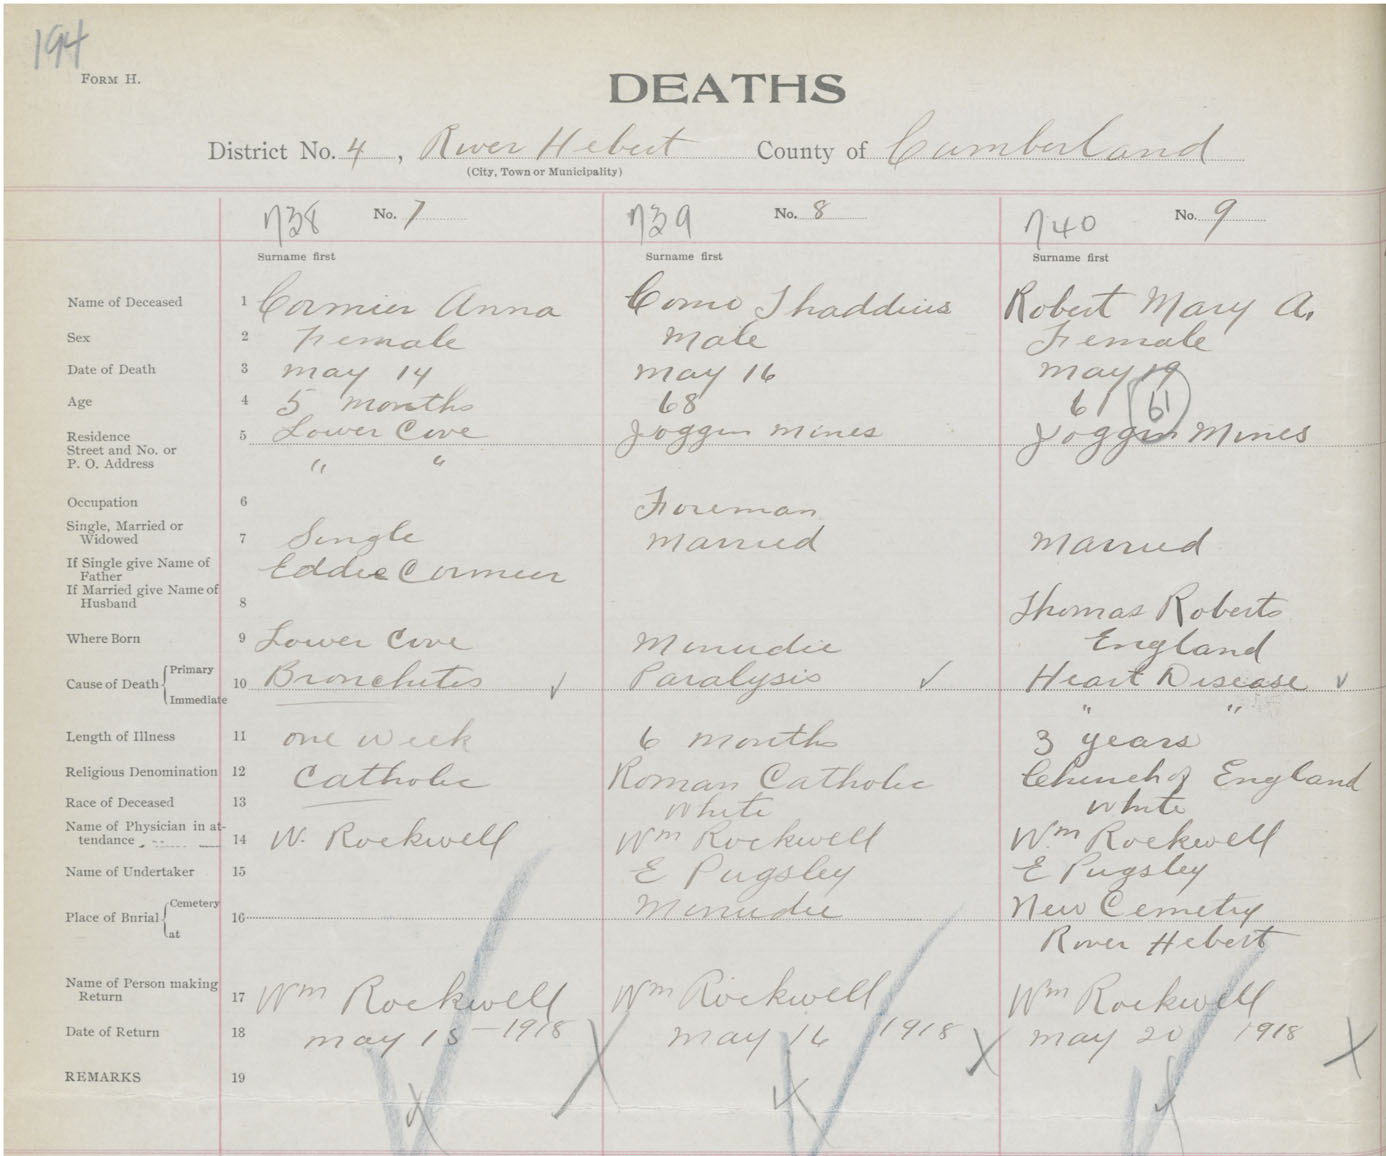 194
FORM H.
DEATHS
District No. 4, River Hebert County of Cumberland
(City, Town or Municipality)
738 No. 7 739 No. 8 740 No. 9
Surname first Surname first Surname first
Name of Deceased 1 Cormier Anna Como Thaddius Robert Mary A.
Sex 2 Female Male Female
Date of Death 3 May 14 May 16 May 19
Age 4 5 months 68 61 61
Residence 5 Lower Cove Joggin Mines Joggin Mines
Street and No. or
P. O. Address " "
Occupation 6 Foreman
Single, Married or
Widowed 7 Single Married Married
If Single give Name of
Father Eddie Cormier
If Married give Name of
Husband 8 Thomas Roberts
Where Born 9 Lower Cove Minudie England
Cause of Death Primary 10 Bronchitis ✓ Paralysis ✓ Heart Disease ✓
Immediate " "
Length of Illness 11 one week 6 months 3 years
Religious Denomination 12 Catholic Roman Catholic Church of England
Race of Deceased 13 White White
Name of Physician in at-
tendance 14 W. Rockwell Wm Rockwell Wm Rockwell
Name of Undertaker 15 E Pugsley E Pugsley
Place of Burial Cemetery 16 Minudie New Cemetry
at River Hebert
Name of Person making
Return 17 Wm Rockwell Wm Rockwell Wm Rockwell
Date of Return 18 May 15 - 1918 May 16 1918 May 20 1918
REMARKS 19